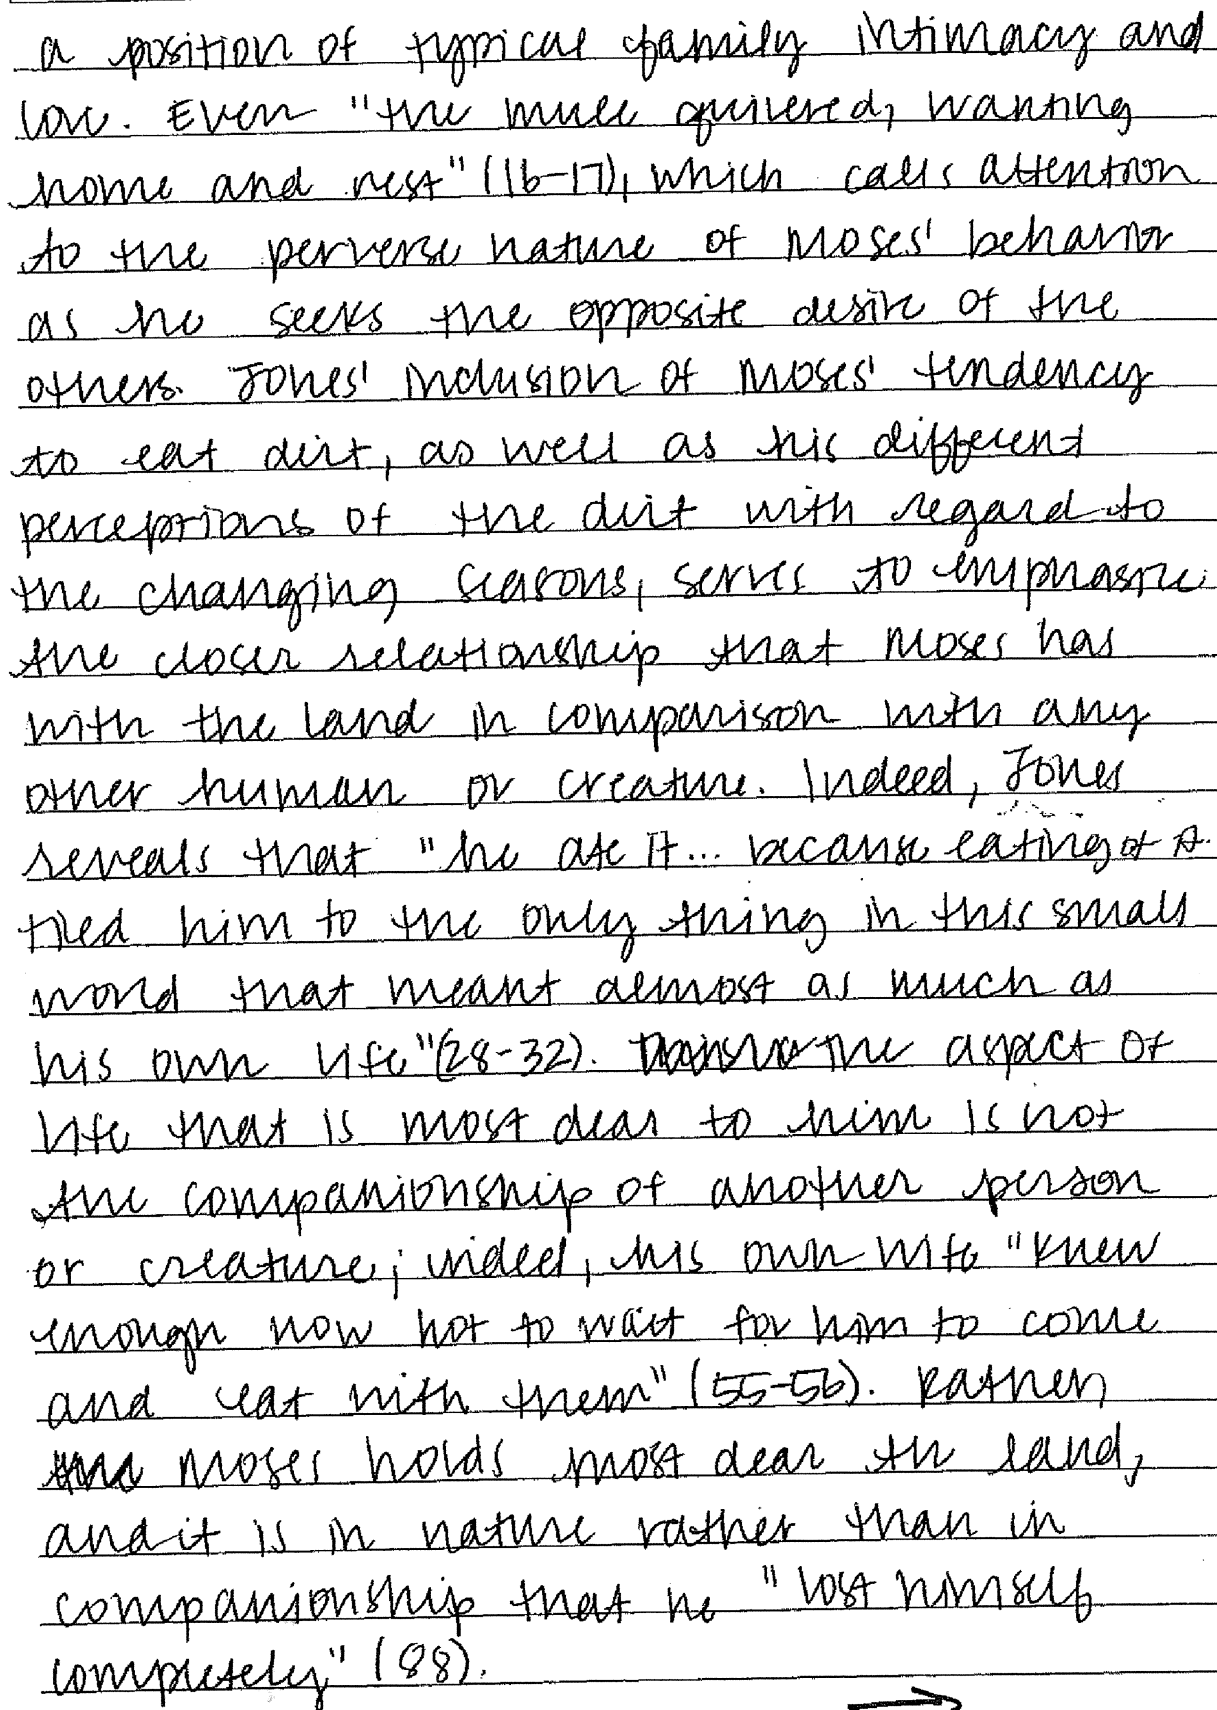 a position of typical family intimacy and
love. Even "the mule quivered, wanting
home and rest" (16-17), which calls attention
to the perverse nature of Moses' behavior
as he seeks the opposite desire of the
others. Jones' inclusion of Moses' tendency
to eat dirt, as well as his different
perceptions of the dirt with regard to
the changing seasons, serves to emphasize
the closer relationship that Moses has
with the land in comparison with any
other human or creature. Indeed, Jones
reveals that "he ate it... because eating of it
tied him to the only thing in this small
world that meant almost as much as
his own life" (28-32). the aspect of
life that is most dear to him is not
the companionship of another person
or creature; indeed, his own wife "knew
enough now not to wait for him to come
and eat with them" (55-56). Rather,
Moses holds most dear the land,
and it is in nature rather than in
companionship that he "lost himself
completely" (88).
→